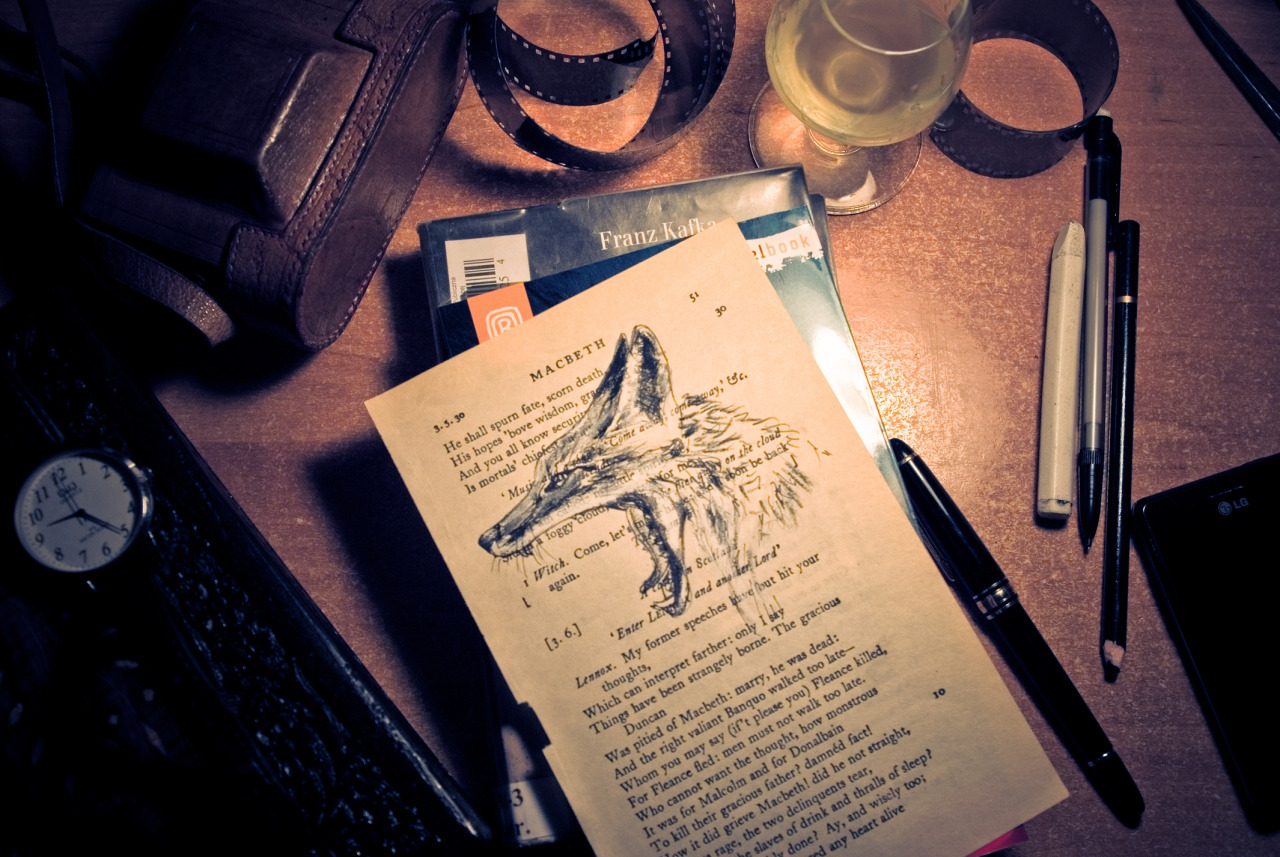 Franz Kafka
elbook
51
30
MACBETH
3.5.30
He shall spurn fate, scorn death
His hopes 'bove wisdom, gr
And you all know securi
Is mortals' chief
'Musi
'Come a way,' &c.
on the cloud
a foggy cloud
1 Witch. Come, let's
be back
again.
[3.6.]
'Enter Le and another Lord'
Lennox. My former speeches have but hit your
thoughts,
Which can interpret farther: only I say
Things have been strangely borne. The gracious
Duncan
Was pitied of Macbeth: marry, he was dead:
And the right valiant Banquo walked too late—
Whom you may say (if't please you) Fleance killed,
For Fleance fled: men must not walk too late.
10
Who cannot want the thought, how monstrous
It was for Malcolm and for Donalbain
To kill their gracious father? damnéd fact!
How it did grieve Macbeth! did he not straight,
rage, the two delinquents tear,
the slaves of drink and thralls of sleep?
done? Ay, and wisely too;
any heart alive
12
1
2
4
5
6
7
8
9
10
11
LG
3
r.